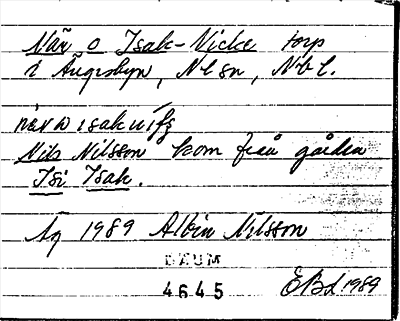 När o Isak-Nicke torp
i Ängesbyn, Nl sn, Nbl.
Nils Nilsson kom från gården
Isi Isak.
Äg 1989 Albin Nilsson
DAUM
4645
EBd 1989